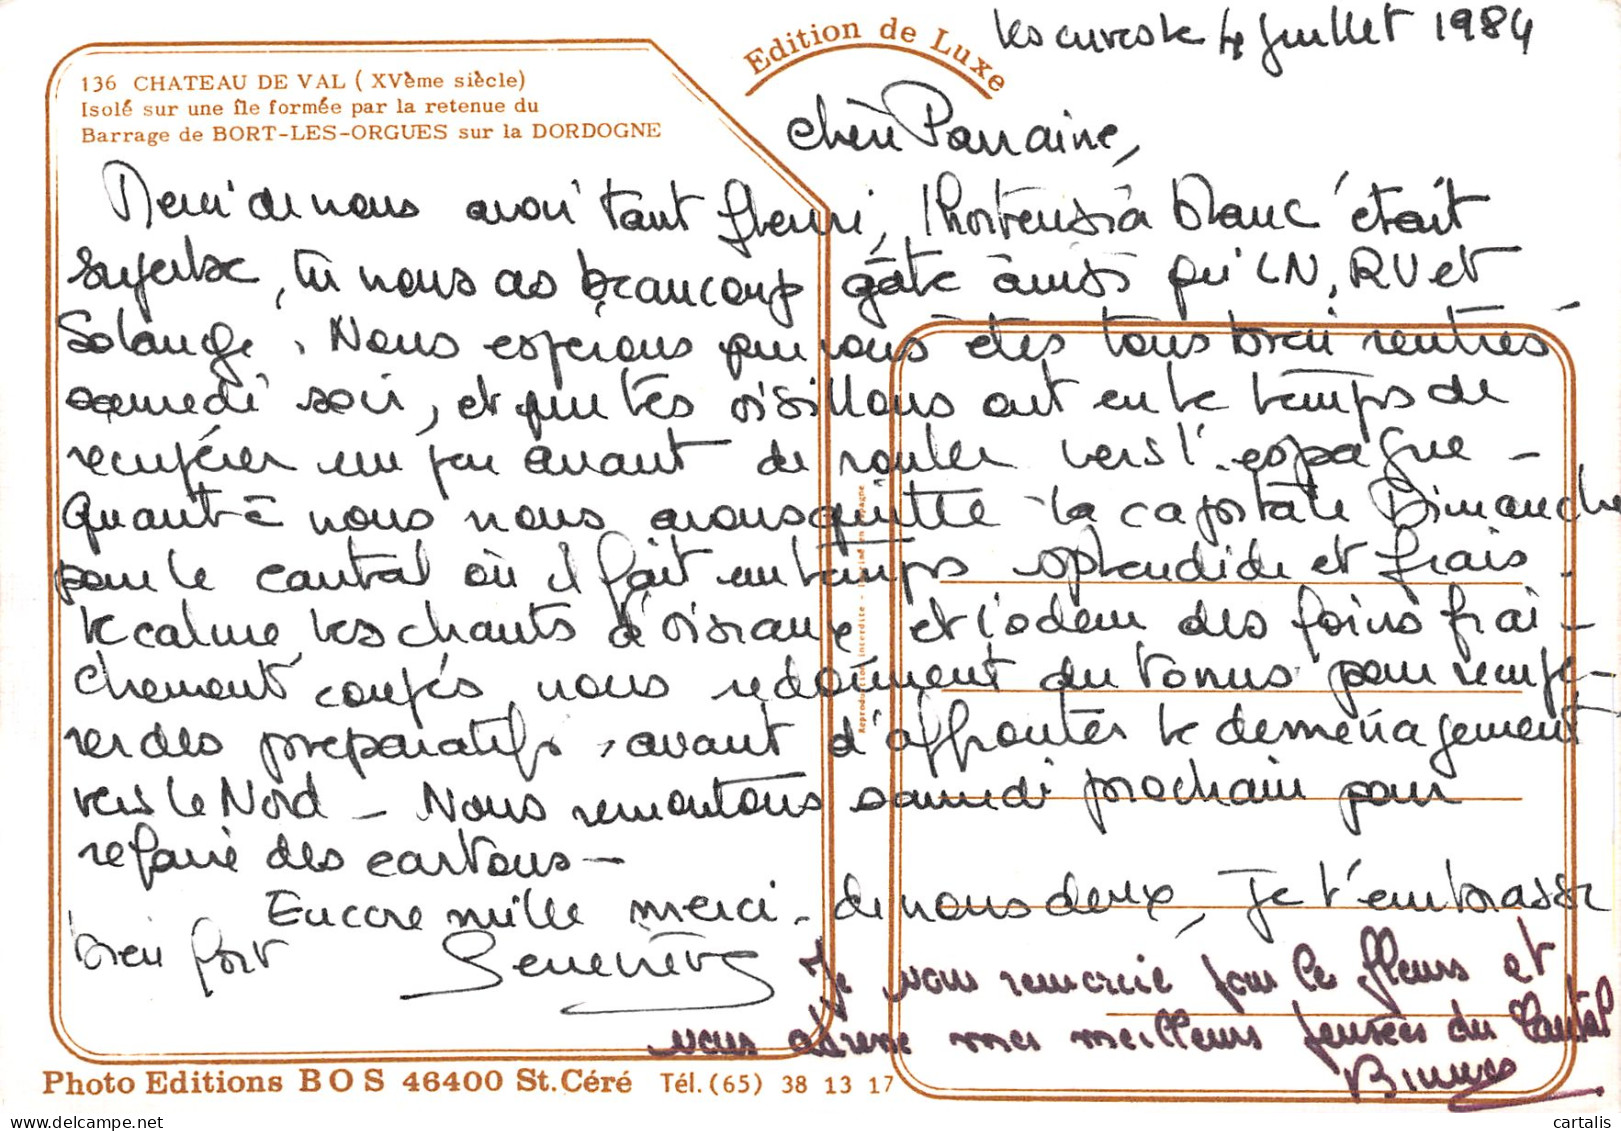 Edition de Luxe
4 Juillet 1984
136 CHATEAU DE VAL ( XVème siècle)
Isolé sur une île formée par la retenue du
Barrage de BORT-LES-ORGUES sur la DORDOGNE
Chère Parraine,
Merci de nous avoir tant fleuri, l'hortensia blanc était
superbe, tu nous as beaucoup gâté ainsi qu'LN, RV et
Solange. Nous espérons que vous êtes tous bien rentrés
samedi soir, et que tes oisillons ont eu le temps de
recupérer un peu avant de rouler vers l'espagne -
Quant à nous nous avons quitté la capitale Dimanche
pour le cantal où il fait un temps splendide et frais.
le calme, les chants d'oiseaux et l'odeur des foins frai-
chement coupés nous redonnent du tonus pour recupe-
rer des preparatifs, avant d'affronter le demenagement
vers le Nord - Nous remontons samedi prochain pour
refaire des cartons -
Encore mille merci - de nous deux, Je t'embrasse
bien fort Geneviève
Je vous remercie pour les fleurs et
vous adresse mes meilleurs pensées du Cantal
Reproduction interdite -
Photo Editions BOS 46400 St.Céré Tél.(65) 38 13 17